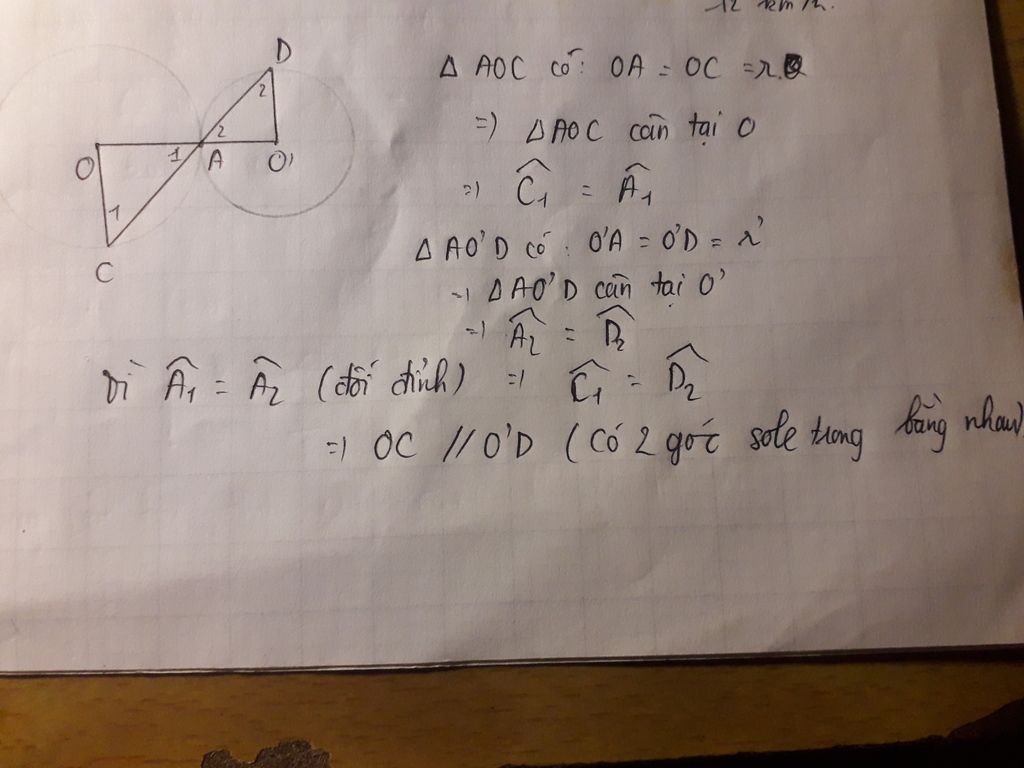 12 km/h.
D
2
2
O
1
A
O'
1
C
Δ AOC có: OA = OC = r
=) Δ AOC cân tại O
=) Ĉ₁ = Â₁
Δ AO'D có: O'A = O'D = r'
=) Δ AO'D cân tại O'
=) Â₂ = D̂₂
Vì Â₁ = Â₂ (đối đỉnh) =) Ĉ₁ = D̂₂
=) OC // O'D (Có 2 góc sole trong bằng nhau)